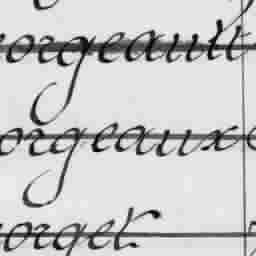 orgeault
orgeaux
orget